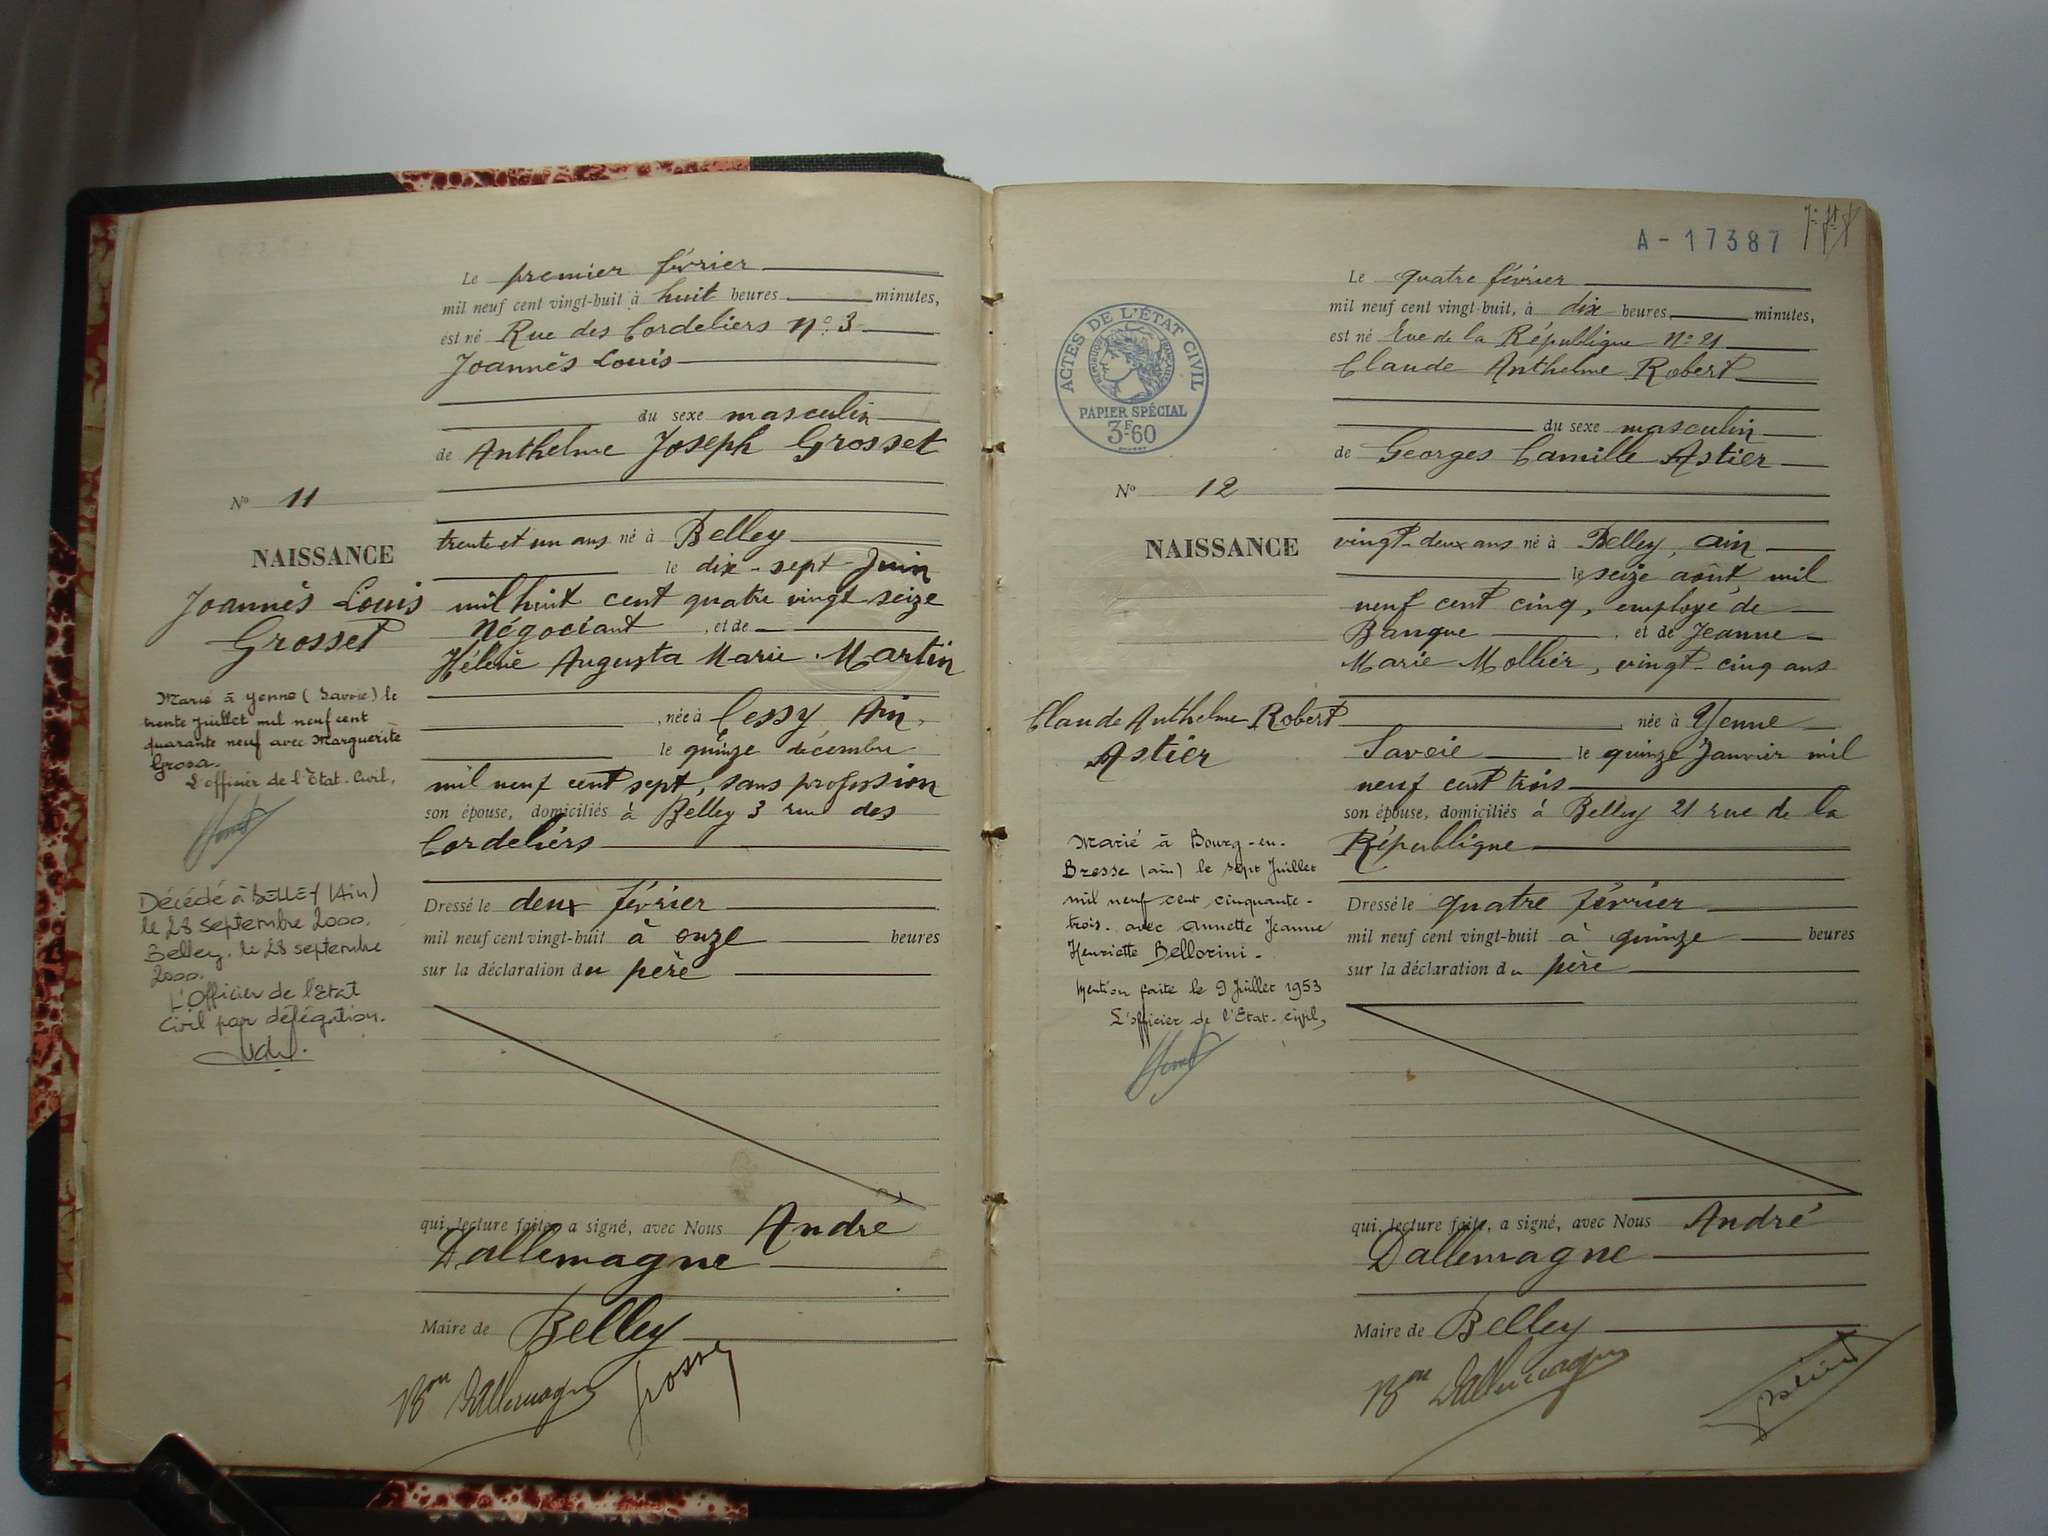 Le premier février
mil neuf cent vingt-huit à huit heures minutes,
est né Rue des Cordeliers N° 3
Joannès Louis
du sexe masculin
de Anthelme Joseph Grosset
N° 11
trente et un ans né à Belley
NAISSANCE
le dix-sept Juin
Joannès Louis
Grosset
mil huit cent quatre vingt seize
négociant, et de
Hélène Augusta Marie Martin
Marié à Yenne (Savoie) le
trente Juillet mil neuf cent
quarante neuf avec Marguerite
L'officier de l'Etat-Civil,
, née à Cessy, Ain,
le quinze décembre
mil neuf cent sept, sans profession
son épouse, domiciliés à Belley 3 rue des
Cordeliers
Décédé à BELLEY (Ain)
le 28 septembre 2000.
Belley, le 28 septembre
2000.
L'Officier de l'Etat
Civil par délégation.
Dressé le deux février
mil neuf cent vingt-huit à onze heures
sur la déclaration du père
qui, lecture faite, a signé, avec Nous André
Dallemagne
Maire de Belley
Bon Dallemagne
Grosset
A-17387
Le quatre février
mil neuf cent vingt-huit, à dix heures minutes,
est né Rue de la République N° 21
Claude Anthelme Robert
ACTES DE L'ÉTAT CIVIL
RÉPUBLIQUE FRANÇAISE
PAPIER SPÉCIAL
3F60
du sexe masculin
de Georges Camille Astier
N° 12
NAISSANCE
vingt-deux ans né à Belley, ain
le seize août mil
neuf cent cinq, employé de
Banque, et de Jeanne
Marie Mollier, vingt-cinq ans
Claude Anthelme Robert
Astier
, née à Yenne
Savoie le quinze Janvier mil
neuf cent trois
son épouse, domiciliés à Belley 21 rue de la
République
Marié à Bourg-en-
Bresse (ain) le sept Juillet
mil neuf cent cinquante-
trois avec Annette Jeanne
Henriette Bellorini-
Mention faite le 9 Juillet 1953
L'officier de l'Etat-civil,
Dressé le quatre février
mil neuf cent vingt-huit à quinze heures
sur la déclaration du père
qui, lecture faite, a signé, avec Nous André
Dallemagne
Maire de Belley
Bon Dallemagne
Astier